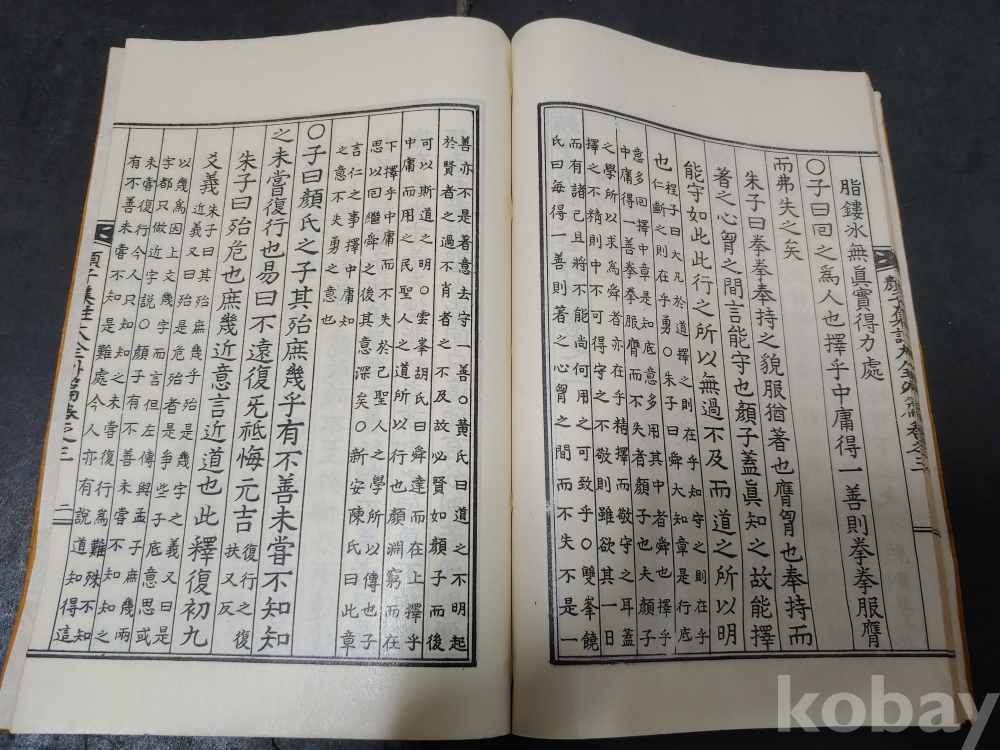 顔子集註大全外篇卷之三
脂鏤氷無眞實得力處
〇子曰回之爲人也擇乎中庸得一善則拳拳服膺
而弗失之矣
朱子曰拳拳奉持之貌服猶著也膺胷也奉持而
著之心胷之間言能守也顔子蓋眞知之故能擇
能守如此此行之所以無過不及而道之所以明
也
程子曰大凡於道擇之則在乎知守之則在乎
仁斷之則在乎勇〇朱子曰舜大知章是行底
意多回擇中章是知底意多用其中者舜也擇乎
中庸得一善拳拳服膺而不失者顔子也夫顔子
之學所以求爲舜者亦在乎精擇而敬守之耳蓋
擇之不精則中不可得守之不敬則雖欲其一日
而有諸己且將不能尚何用之可致乎〇雙峯饒
氏曰每得一善則著之心胷之間而不失不是一
善亦不是著意去守一善〇黃氏曰道之不明起
於賢者之過不肖者之不及故必賢如顔子而後
可以斯道之明〇雲峯胡氏曰舜達而在上擇乎
中庸而用之民聖人之道所以行也顔淵窮而在
下擇乎中庸而不失於己聖人之學所以傳也子
思以回繼舜之後其意深矣〇新安陳氏曰此章
言仁之事擇中庸知
之意不失勇之意也
〇子曰顔氏之子其殆庶幾乎有不善未嘗不知知
之未嘗復行也易曰不遠復旡祗悔元吉
復行之復
扶又反
朱子曰殆危也庶幾近意言近道也此釋復初九
爻義
朱子曰其殆庶乎殆是幾字之義又曰是
近義又曰殆是危殆者是爭些子底意思或
以幾爲因上文幾字而言但左傳與孟子庶幾兩
字都只做近字說〇顔子有不善未嘗不知知之
未嘗復行今人只知知之未嘗復行爲難殊不知
有不善未嘗不知是難處今人亦有說道知得這
顔子集註大全外篇卷之三
二
kobay